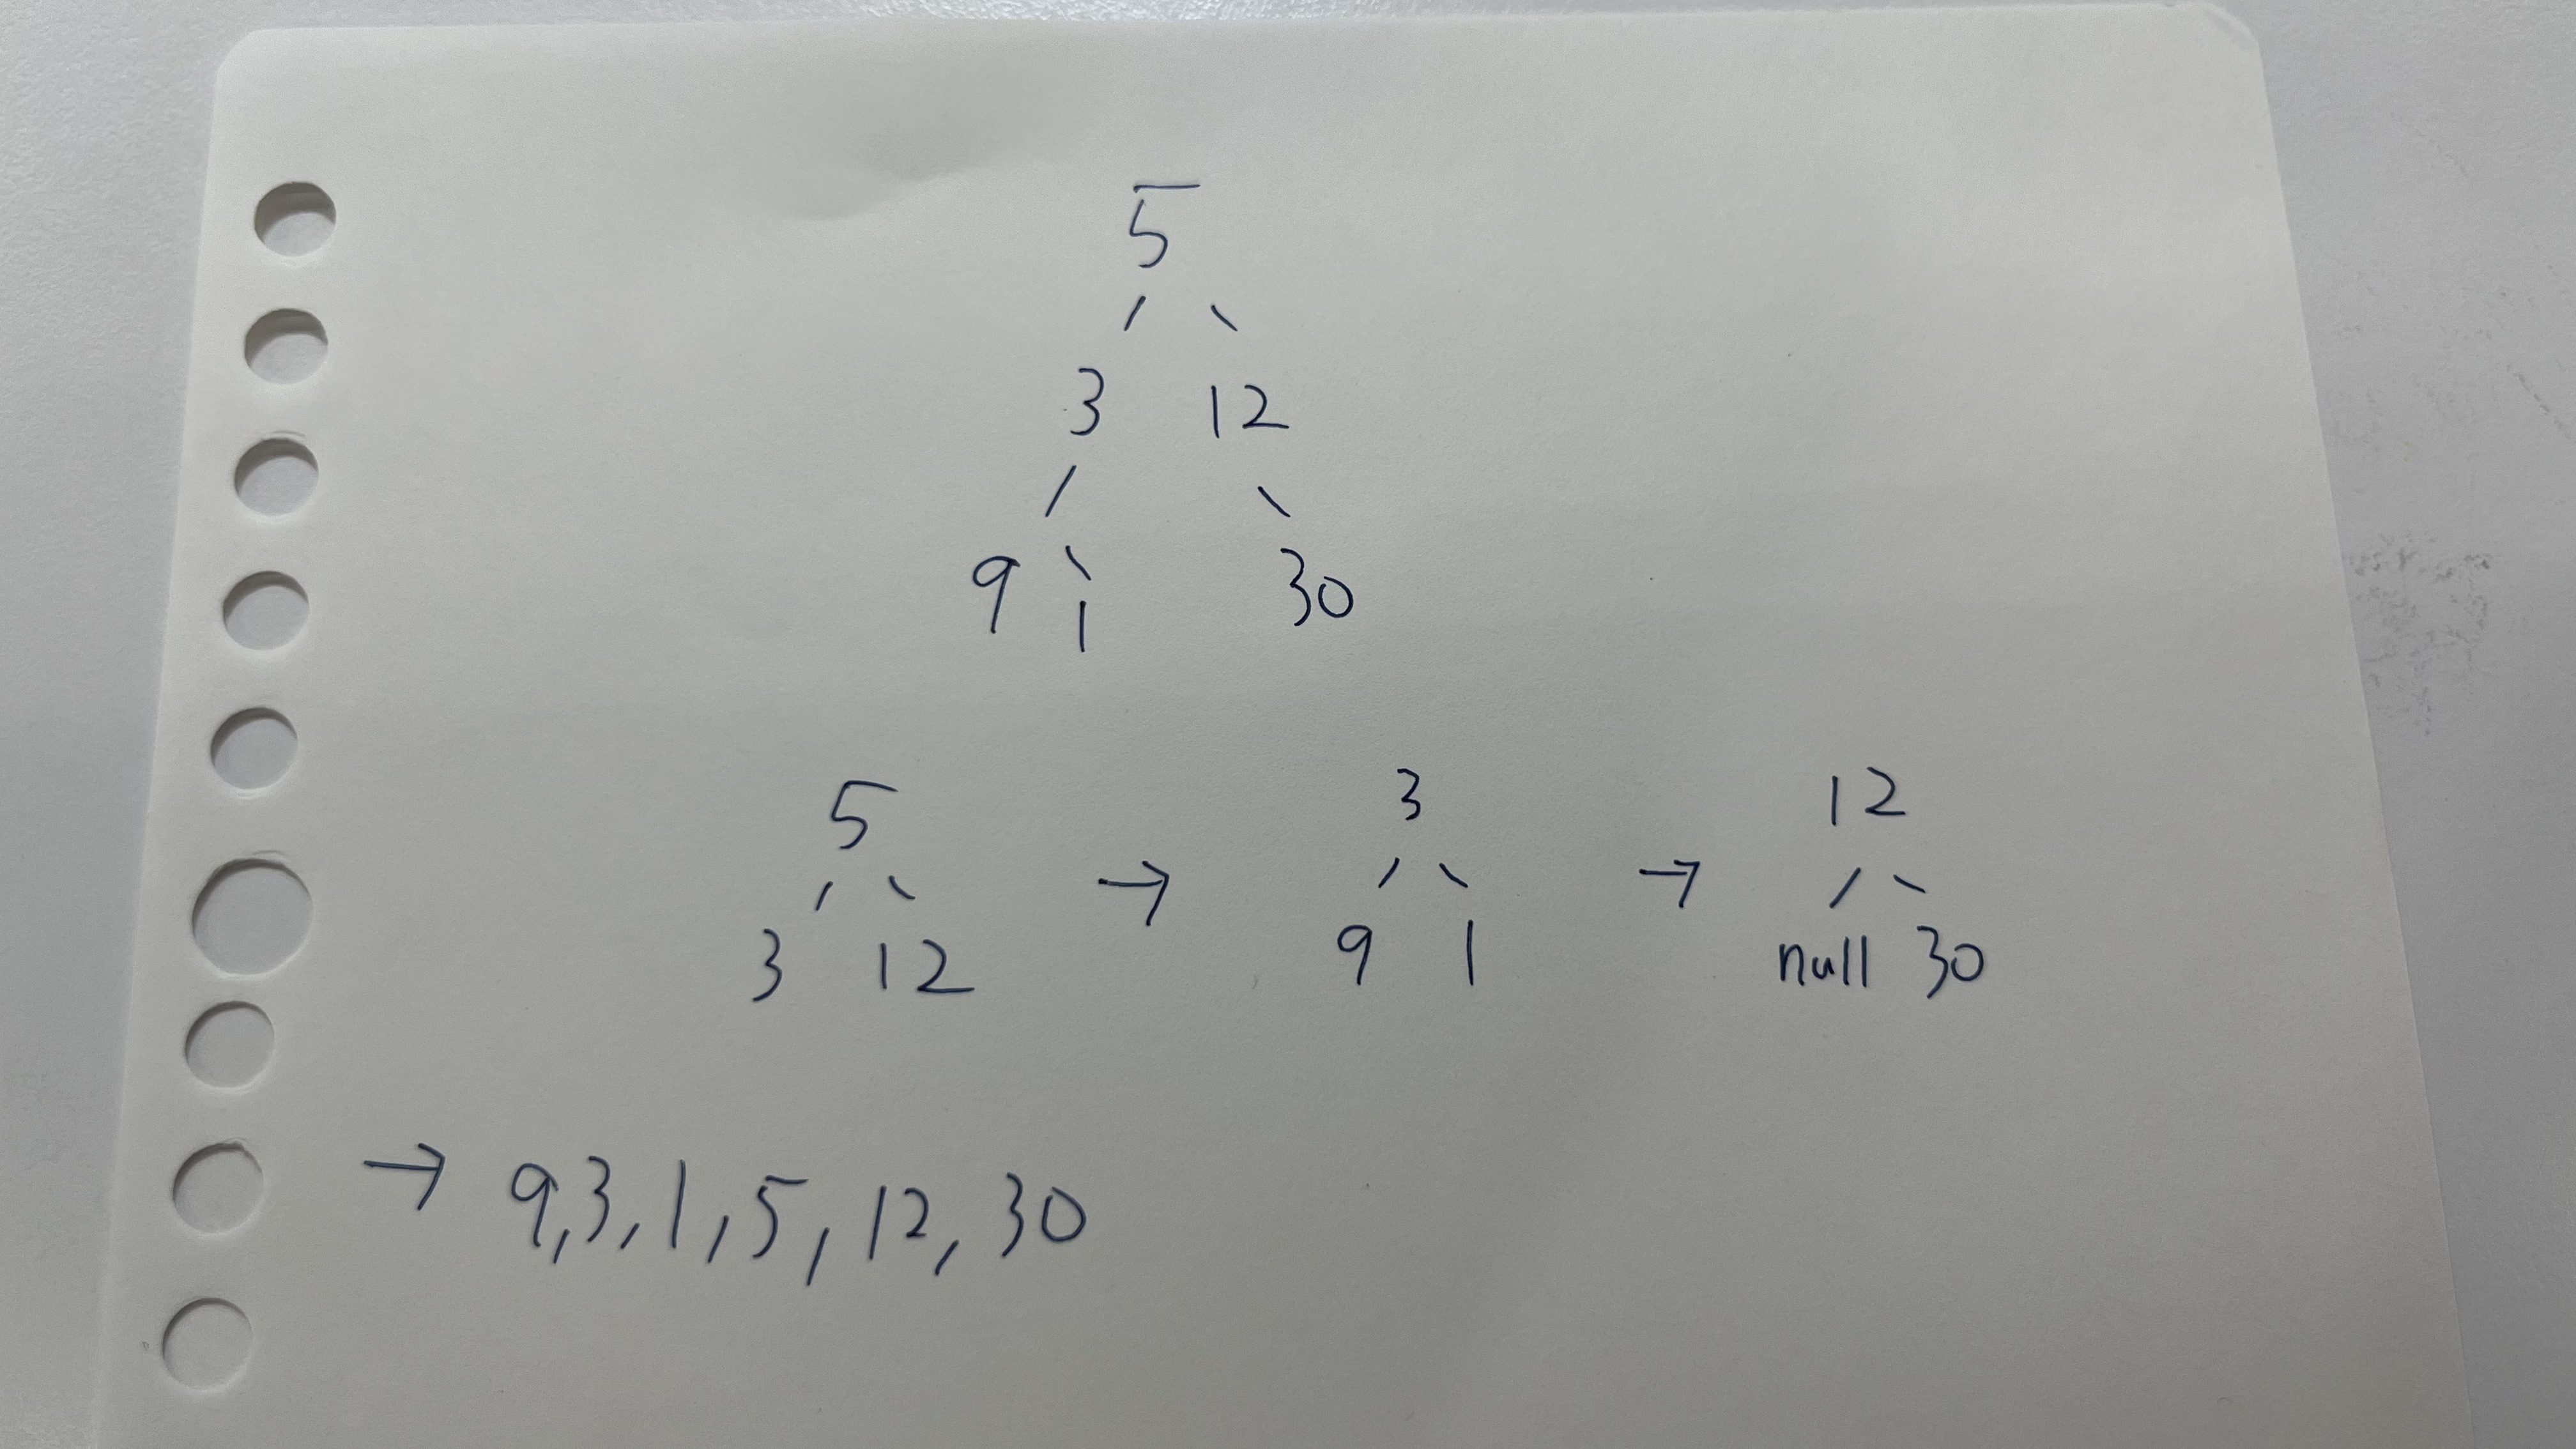 5
/ \
3 12
/ \
9 \ 30
1
5 3 12
/ \ → / \ → / \
3 12 9 1 null 30
→ 9,3,1,5,12,30